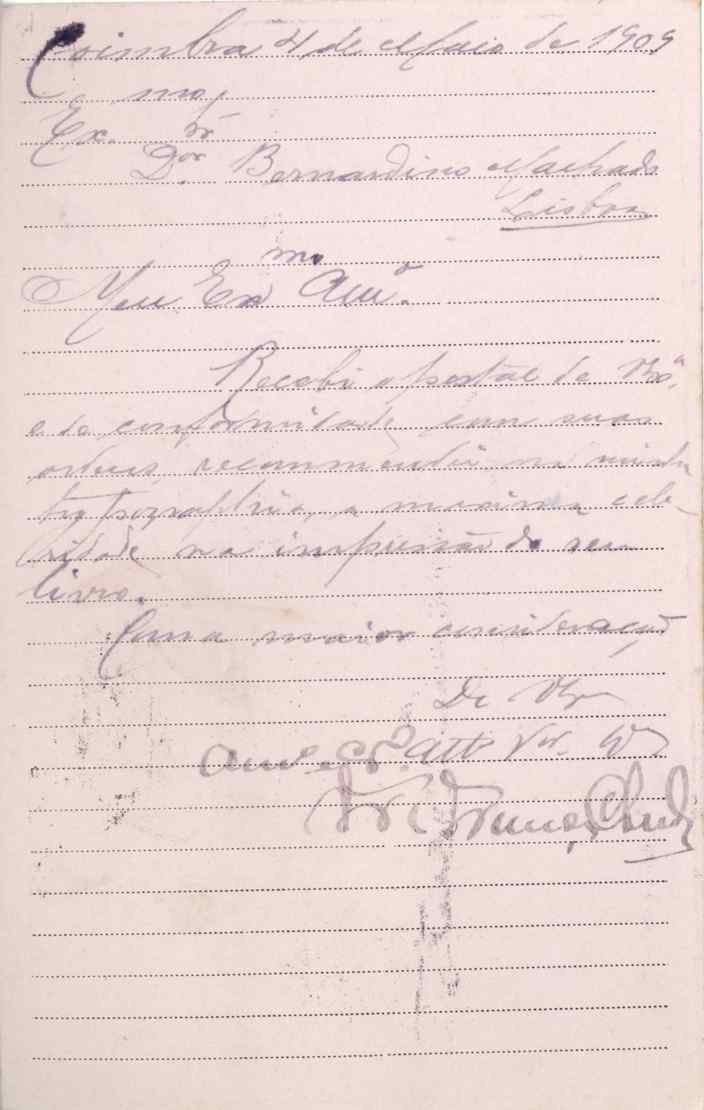 Coimbra 4 de Maio de 1909
Ex.mo Sr
Dor. Bernardino Machado
Lisboa
Meu Exmo Amo.
Recebi o postal de V. Exa.
e de conformidade com suas
ordens recommendei na minha
typographia, a maxima cele-
ridade na impressão do seu
livro.
Com a maior consideração
De V. Exa
Amo. e Cro. atto Vor.
França